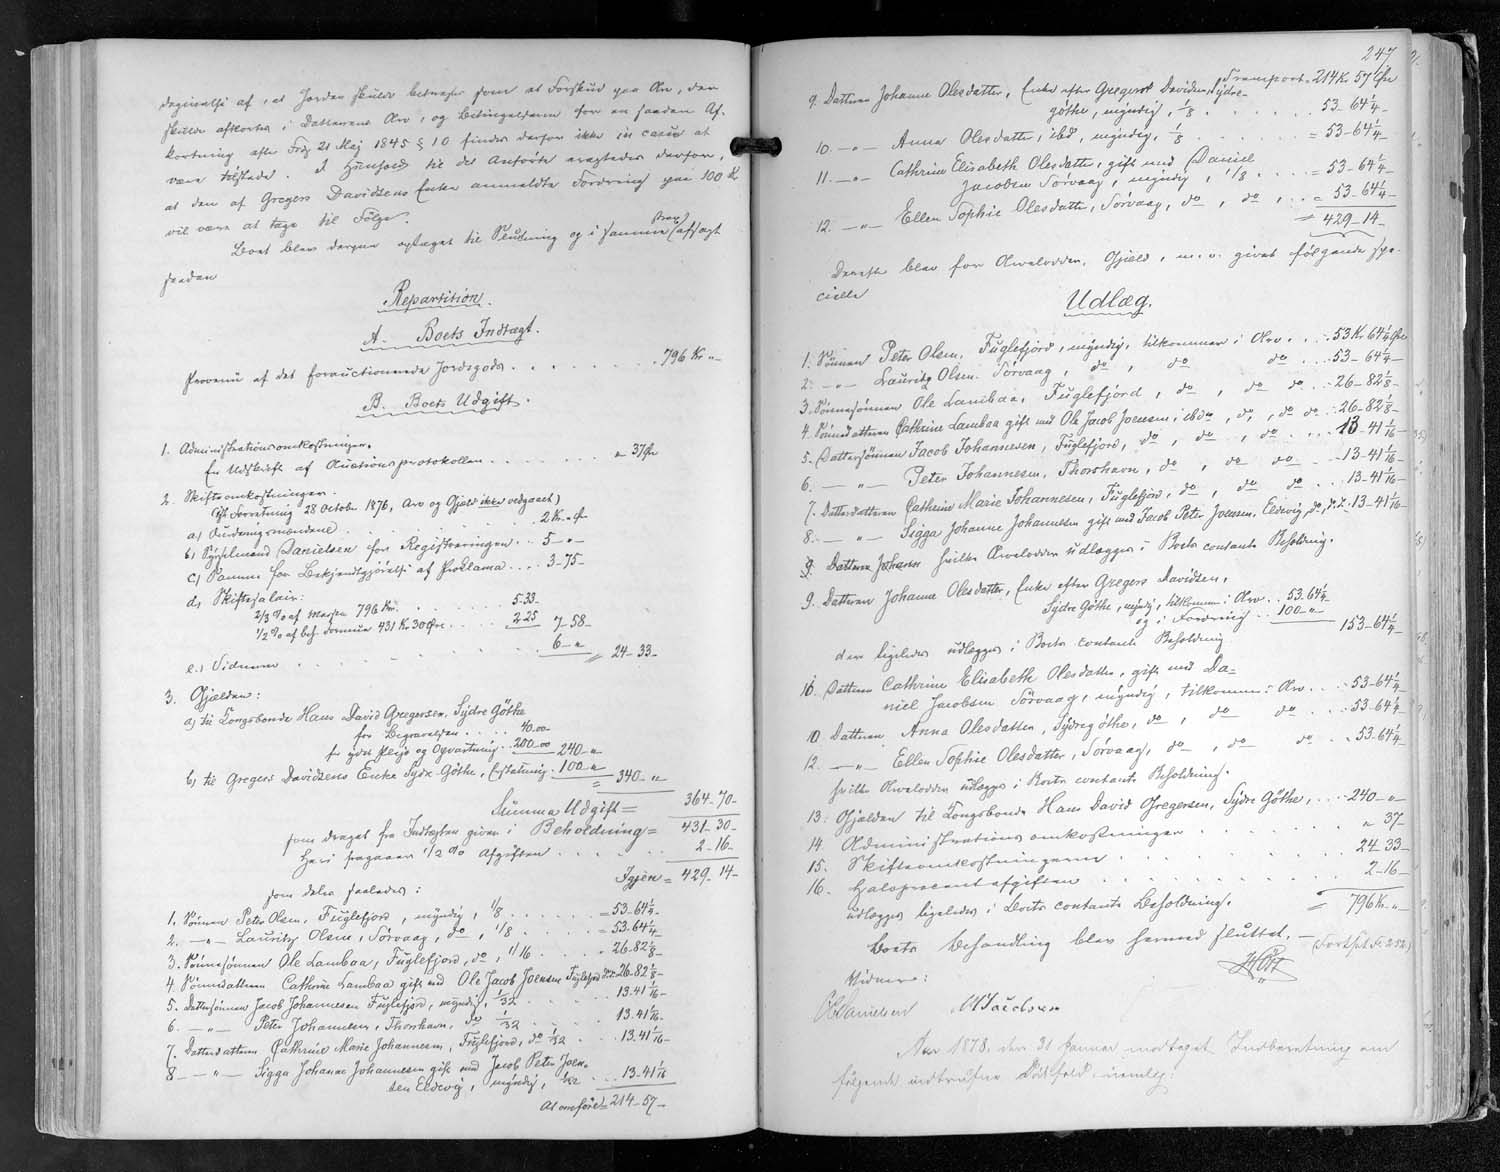 degivelse af, at Jorden skulde betragtes som et Forskud paa Arv, der
skulde afkortes i Datterens Arv, og Betingelserne for en saadan Af-
kortning efter Frdg 21 Maj 1845 § 10 findes derfor ikke in casu at
være tilstede. I Henhold til det Anførte eragtedes derfor,
at den af Gregers Davidsens Enke anmeldte Fordring paa 100 Kr
vil være at tage til Følge.
Boet blev derpaa optaget til Slutning og i samme Boet afsagt
saadan
Repartition.
A. Boets Indtægt.
Provenu af det forauctionerede Jordegods . . . . . . 796 Kr "
B. Boets Udgift.
1. Administrationsomkostninger.
En Udskrift af Auctionsprotokollen . . . . . . . " 37 Øre
2. Skifteomkostninger.
Ifl Forretning 28 October 1876, Arv og Gjæld ikke vedgaaet)
a) Vurderingsmændene . . . . 2 Kr. " Ø
b) Sysselmand Danielsen for Registreringen . . 5 - "
c) Samme for Bekjendtgjørelse af Proklama . . . . 3-75-
d) Skiftesalair:
2/3 % af Massen 796 Kr. . . . . . . . 5-33
1/2 % af beh. Formue 431 Kr 30 Øre . . . . 2-25 7-58-
e) Vidnerne . . . . . . . . . 6 - " = 24-33-
3. Gjælden:
a) til Kongsbonde Hans David Gregersen, Sydre Göthe
for Begravelsen . . . . . 40.00-
for ydet Pleje og Opvartning . . 200-00 240- "
b) til Gregers Davidsens Enke Sydr. Göthe, Erstatning . 100- " = 340- "
Summa Udgift = 364-70-
som draget fra Indtægten giver i Beholdning = 431-30-
Heri fragaaer 1/2 % Afgiften . . . . . 2-16-
Igjen = 429-14-
som deles saaledes:
1. Sønnen Peter Olsen, Fuglefjord, myndig, 1/8 . . . . . = 53-64 1/4-
2. - " - Lauritz Olsen, Sørvaag, do, 1/8 . . . . . = 53.64 1/4-
3. Sønnesønnen Ole Lambaa, Fuglefjord, do, 1/16 . . . . " 26.82 1/8-
4. Sønnedatteren Cathrine Lambaa gift med Ole Jacob Joensen Fuglefjord 26-82 1/8-
5. Dattersønnen Jacob Johannesen Fuglefjord, myndig, 1/32 . . . . . 13.41 1/16-
6. - " - Peter Johannesen, Thorshavn, do 1/32 . . . . . 13.41 1/16-
7. Datterdatteren Cathrine Marie Johannesen, Fuglefjord, do 1/32 . . . 13.41 1/16-
8 - " - Sigga Johanne Johannesen gift med Jacob Peter Joen-
sen Eldevig, myndig, 1/32 . . . 13-41 1/16
At overføre = 214-57-
247
Transport 214 Kr 57 Øre
9. Datteren Johanne Olesdatter, Enke efter Gregers Davidsen, Sydre-
göthe, myndig, 1/8 . . . . . . . 53-64 1/4-
10. - " - Anna Olesdatter, ibd, myndig, 1/8 = 53-64 1/4-
11. - " - Cathrine Elisabeth Olesdatter, gift med Daniel
Jacobsen Sørvaag, myndig, 1/8 . . . . = 53-64 1/4-
12. - " - Ellen Sophie Olesdatter, Sørvaag, do, do, . . = 53-64 1/4-
= 429-14-
Derefter blev for Arvelodder, Gjæld, m.v. givet følgende spe-
cielle
Udlæg.
1. Sønnen Peter Olsen, Fuglefjord, myndig, tilkommer i Arv . . . 53 Kr 64 1/4 Øre
2: - " - Lauritz Olsen, Sørvaag, do, do do . . . 53-64 1/4-
3. Sønnesønnen Ole Lambaa, Fuglefjord, do, do do . . . 26-82 1/8-
4. Sønnedatteren Cathrine Lambaa gift med Ole Jacob Joensen, ibd, do, do do . . 26-82 1/8-
5. Dattersønnen Jacob Johannesen, Fuglefjord, do, do, do . . . 13-41 1/16-
6. - " - Peter Johannesen, Thorshavn, do, do do . . . 13-41 1/16-
7. Datterdatteren Cathrine Marie Johannesen, Fuglefjord, do, do do . . . 13-41 1/16-
8. - " - Sigga Johanne Johannesen gift med Jacob Peter Joensen, Eldevig, do, do . 13-41 1/16-
9. Datteren Johanne hvilke Arvelodder udlægges i Boets contante Beholdning.
9. Datteren Johanne Olesdatter, Enke efter Gregers Davidsen,
Sydre Göthe, myndig, tilkommer i Arv . . 53.64 1/4
og i Fordring . . . 100- "
153-64 1/4-
der ligeledes udlægges i Boets contante Beholdning
10. Datteren Cathrine Elisabeth Olesdatter, gift med Da-
niel Jacobsen Sørvaag, myndig, tilkommer i Arv . . . 53-64 1/4-
10. Datteren Anna Olesdatter, Sydregöthe, do, do do . . . 53-64 1/4-
12. - " - Ellen Sophie Olesdatter, Sørvaag, do, do do . . 53-64 1/4-
hvilke Arvelodder udlægges i Boets contante Beholdning.
13. Gjælden til Kongsbonde Hans David Gregersen, Sydre Göthe, . . . . 240- "
14. Administrationsomkostninger . . . . . . . . " 37-
15. Skifteomkostningerne . . . . . . . . . 24-33-
16. Halvprocentafgiften . . . . . . . . . . 2-16-
udlægges ligeledes i Boets contante Beholdning. = 796 Kr. "
Boets Behandling blev hermed sluttet. - (Forts. Fol. 252)
Høst
Vidner:
O Danielsen M Jacobsen
Aar 1878, den 31 Januar modtoges Indberetning om
følgende indtrufne Dødsfald, nemlig: